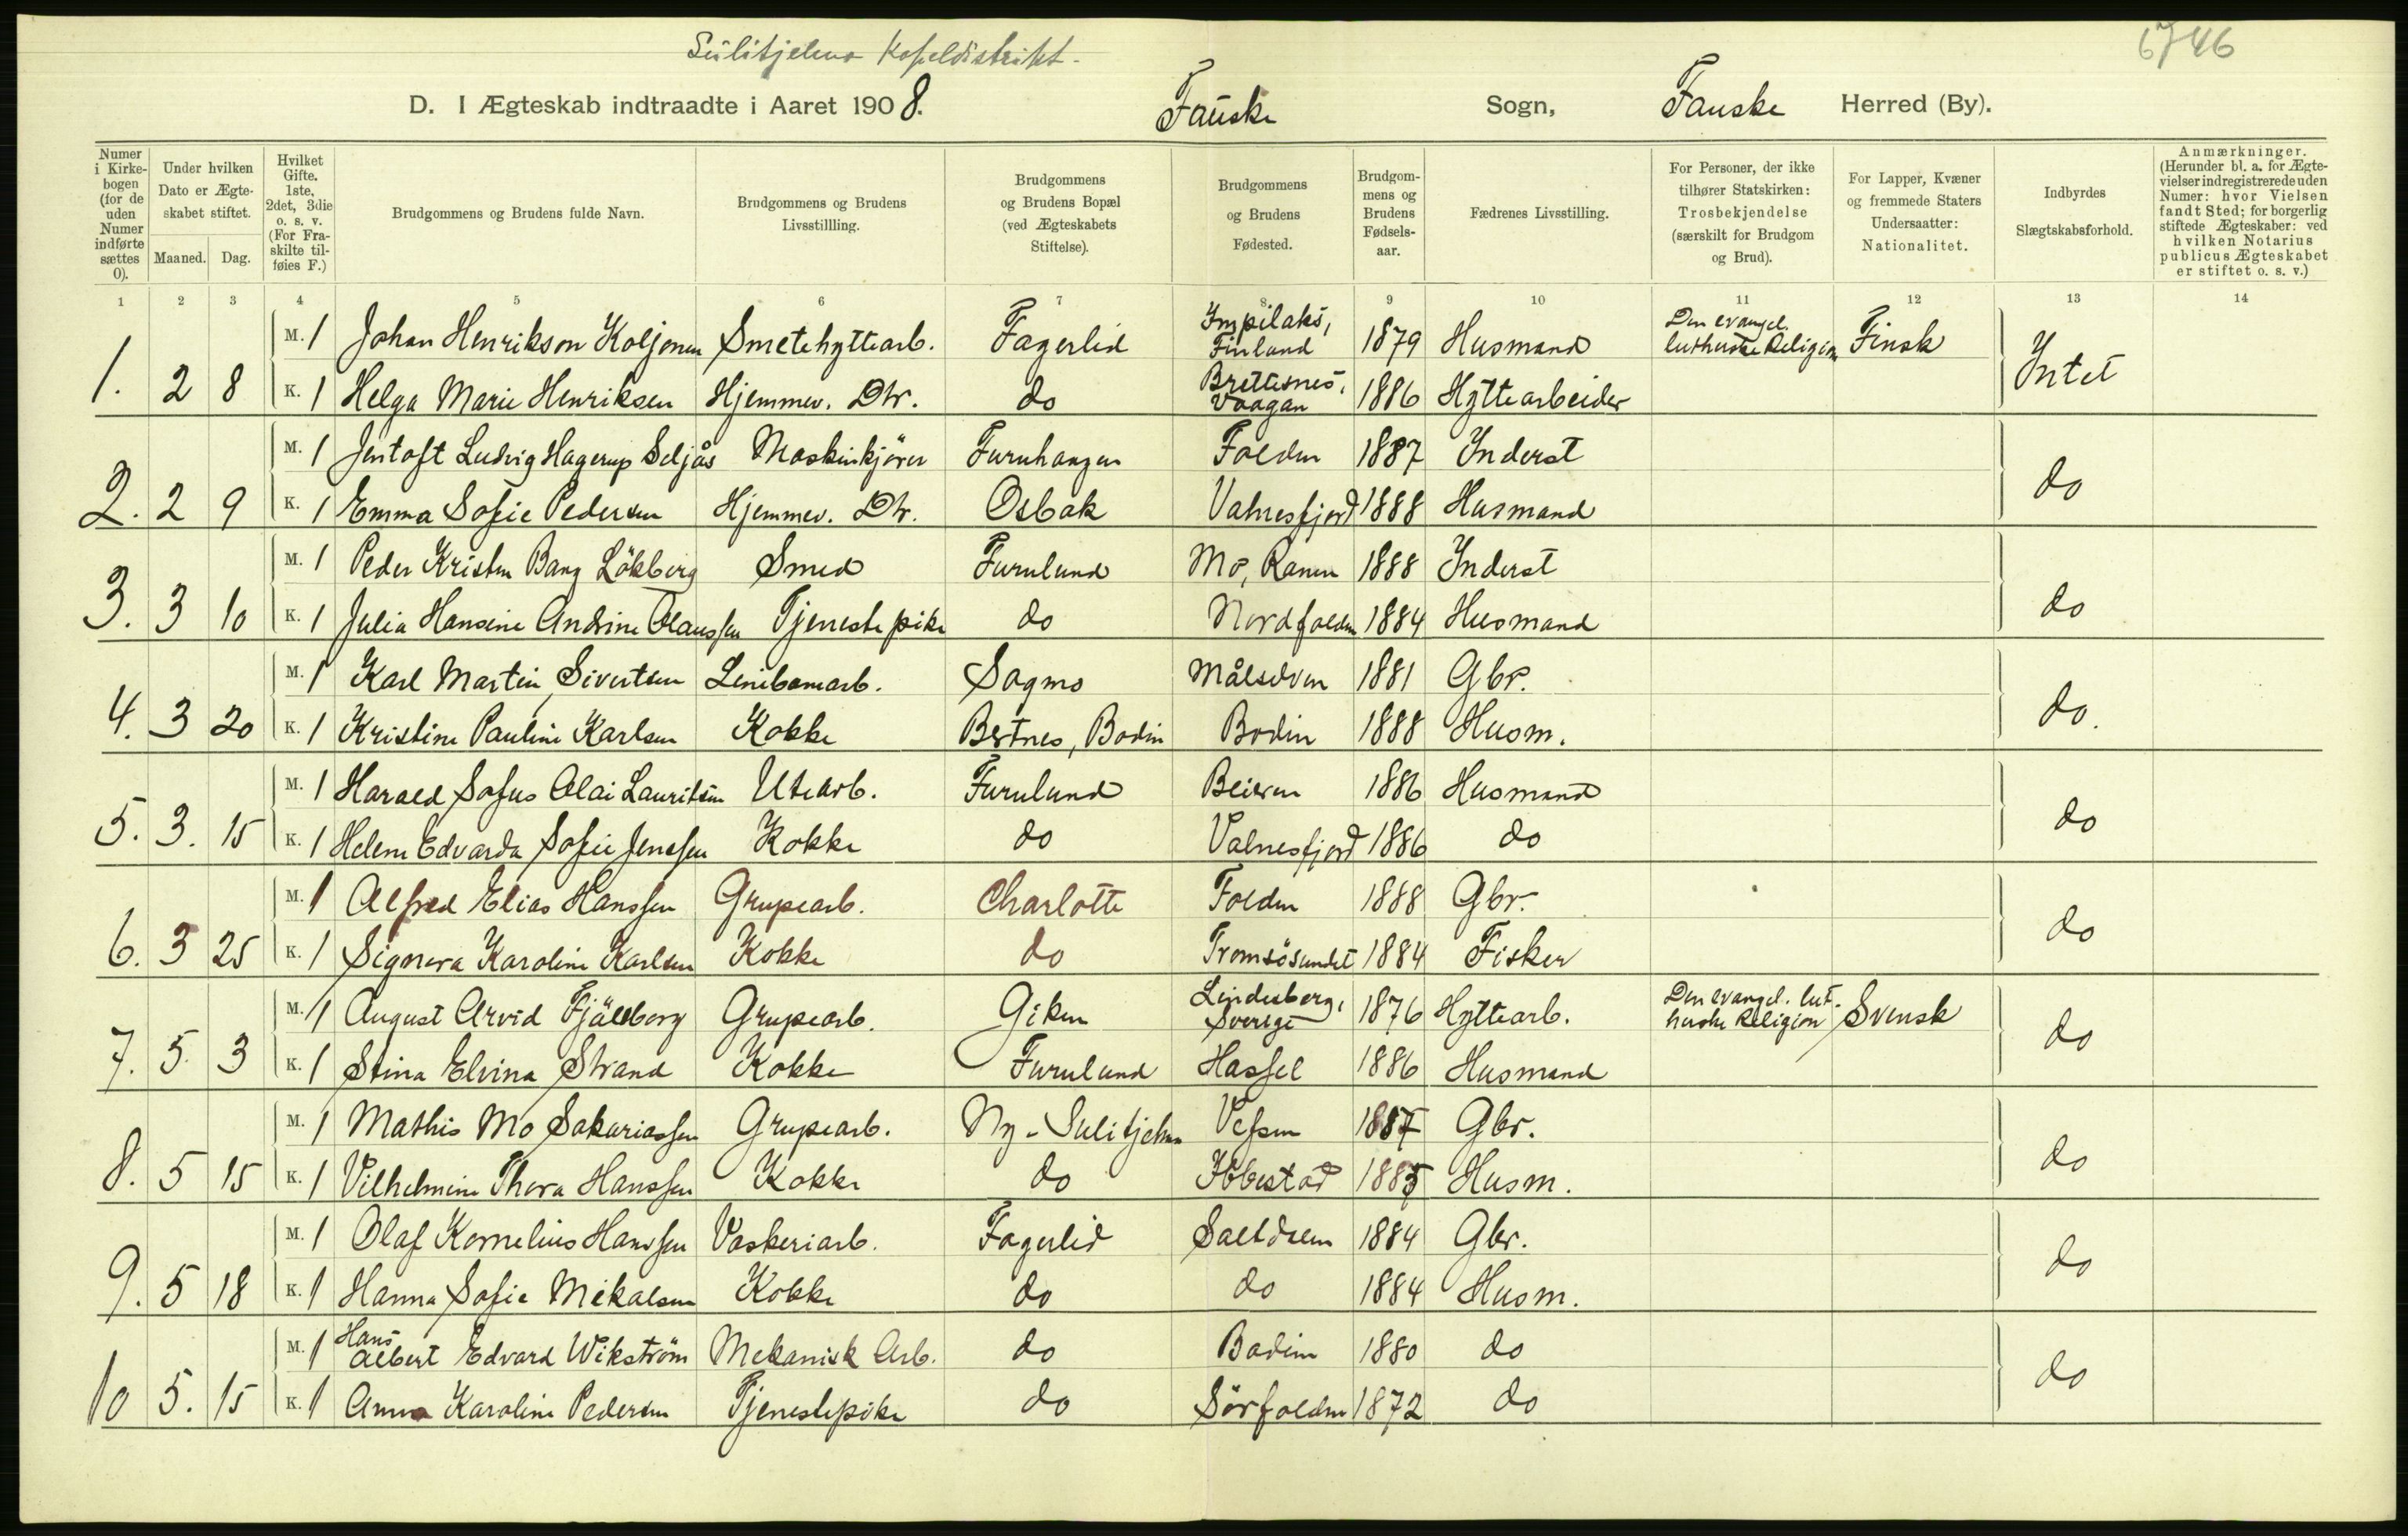 Sulitjelma Kapeldistrikt.
6746
D. I Ægteskab indtraadte i Aaret 1908. Fauske Sogn, Fauske Herred (By).
Numer i Kirkebogen (for de uden Numer indførte sættes 0).
Under hvilken Dato er Ægteskabet stiftet.
Maaned. Dag.
Hvilket Gifte. 1ste, 2det, 3die o. s. v. (For Fraskilte tilføies F.)
Brudgommens og Brudens fulde Navn.
Brudgommens og Brudens Livsstillling.
Brudgommens og Brudens Bopæl (ved Ægteskabets Stiftelse).
Brudgommens og Brudens Fødested.
Brudgommens og Brudens Fødselsaar.
Fædrenes Livsstilling.
For Personer, der ikke tilhører Statskirken: Trosbekjendelse (særskilt for Brudgom og Brud).
For Lapper, Kvæner og fremmede Staters Undersaatter: Nationalitet.
Indbyrdes Slægtskabsforhold.
Anmærkninger. (Herunder bl. a. for Ægtevielser indregistrerede uden Numer: hvor Vielsen fandt Sted; for borgerlig stiftede Ægteskaber: ved hvilken Notarius publicus Ægteskabet er stiftet o. s. v.)
1 2 3 4 5 6 7 8 9 10 11 12 13 14
M. 1 Johan Henrikson Koljonen Smeltehyttearb. Fagerlid Impilaks, Finland 1879 Husmand Den evangel. lutherske Religion Finsk
1. 2 8 K. 1 Helga Marie Henriksen Hjemmev. Dtr. do Brettesnes, Vaagan 1886 Hyttearbeider Intet
M. 1 Jentoft Ludvig Hagerup Seljås Maskinkjörer Furuhaugen Folden 1887 Inderst
2. 2 9 K. 1 Emma Sofie Pedersen Hjemmev. Dtr. Osbak Valnesfjord 1888 Husmand do
M. 1 Peder Kristen Bang Lökberg Smed Furulund Mo, Ranen 1888 Inderst
3. 3 10 K. 1 Julia Hansine Andrine Olaussen Tjenestepike do Nordfolden 1884 Husmand do
M. 1 Karl Martin Sivertsen Linebanearb. Sagmo Målselven 1881 Gbr.
4. 3 20 K. 1 Kristine Pauline Karlsen Kokke Bertnes, Bodin Bodin 1888 Husm. do.
M. 1 Harald Sofus Olai Lauritsen Utearb. Furulund Beieren 1886 Husmand
5. 3. 15 K. 1 Helene Edvarda Sofie Jenssen Kokke do Valnesfjord 1886 do do
M. 1 Alfred Elias Hanssen Grupearb. Charlotte Folden 1888 Gbr.
6. 3 25 K. 1 Signora Karoline Karlsen Kokke do Tromsösundet 1884 Fisker do
M. 1 August Arvid Fjällborg Grupearb. Giken Lindesberg, Sverige 1876 Hyttearb. Den evangel. lutherske Religion Svensk
7. 5. 3 K. 1 Stina Elvina Strand Kokke Furulund Hassel 1886 Husmand do
M. 1 Mathis Mo Sakariassen Grupearb. Ny-Sulitjelma Vefsen 1887 Gbr.
8. 5 15 K. 1 Vilhelmine Thora Hanssen Kokke do Ibbestad 1885 Husm. do
M. 1 Olaf Kornelius Hanssen Vaskeriarb. Fagerlid Saltdalen 1884 Gbr.
9. 5 18 K. 1 Hanna Sofie Mikalsen Kokke do do 1884 Husm. do
M. 1 Hans Albert Edvard Wikström Mekanisk Arb. do Bodin 1880 do
10 5. 15 K. 1 Anna Karoline Pedersen Tjenestepike do Sörfolden 1872 do do